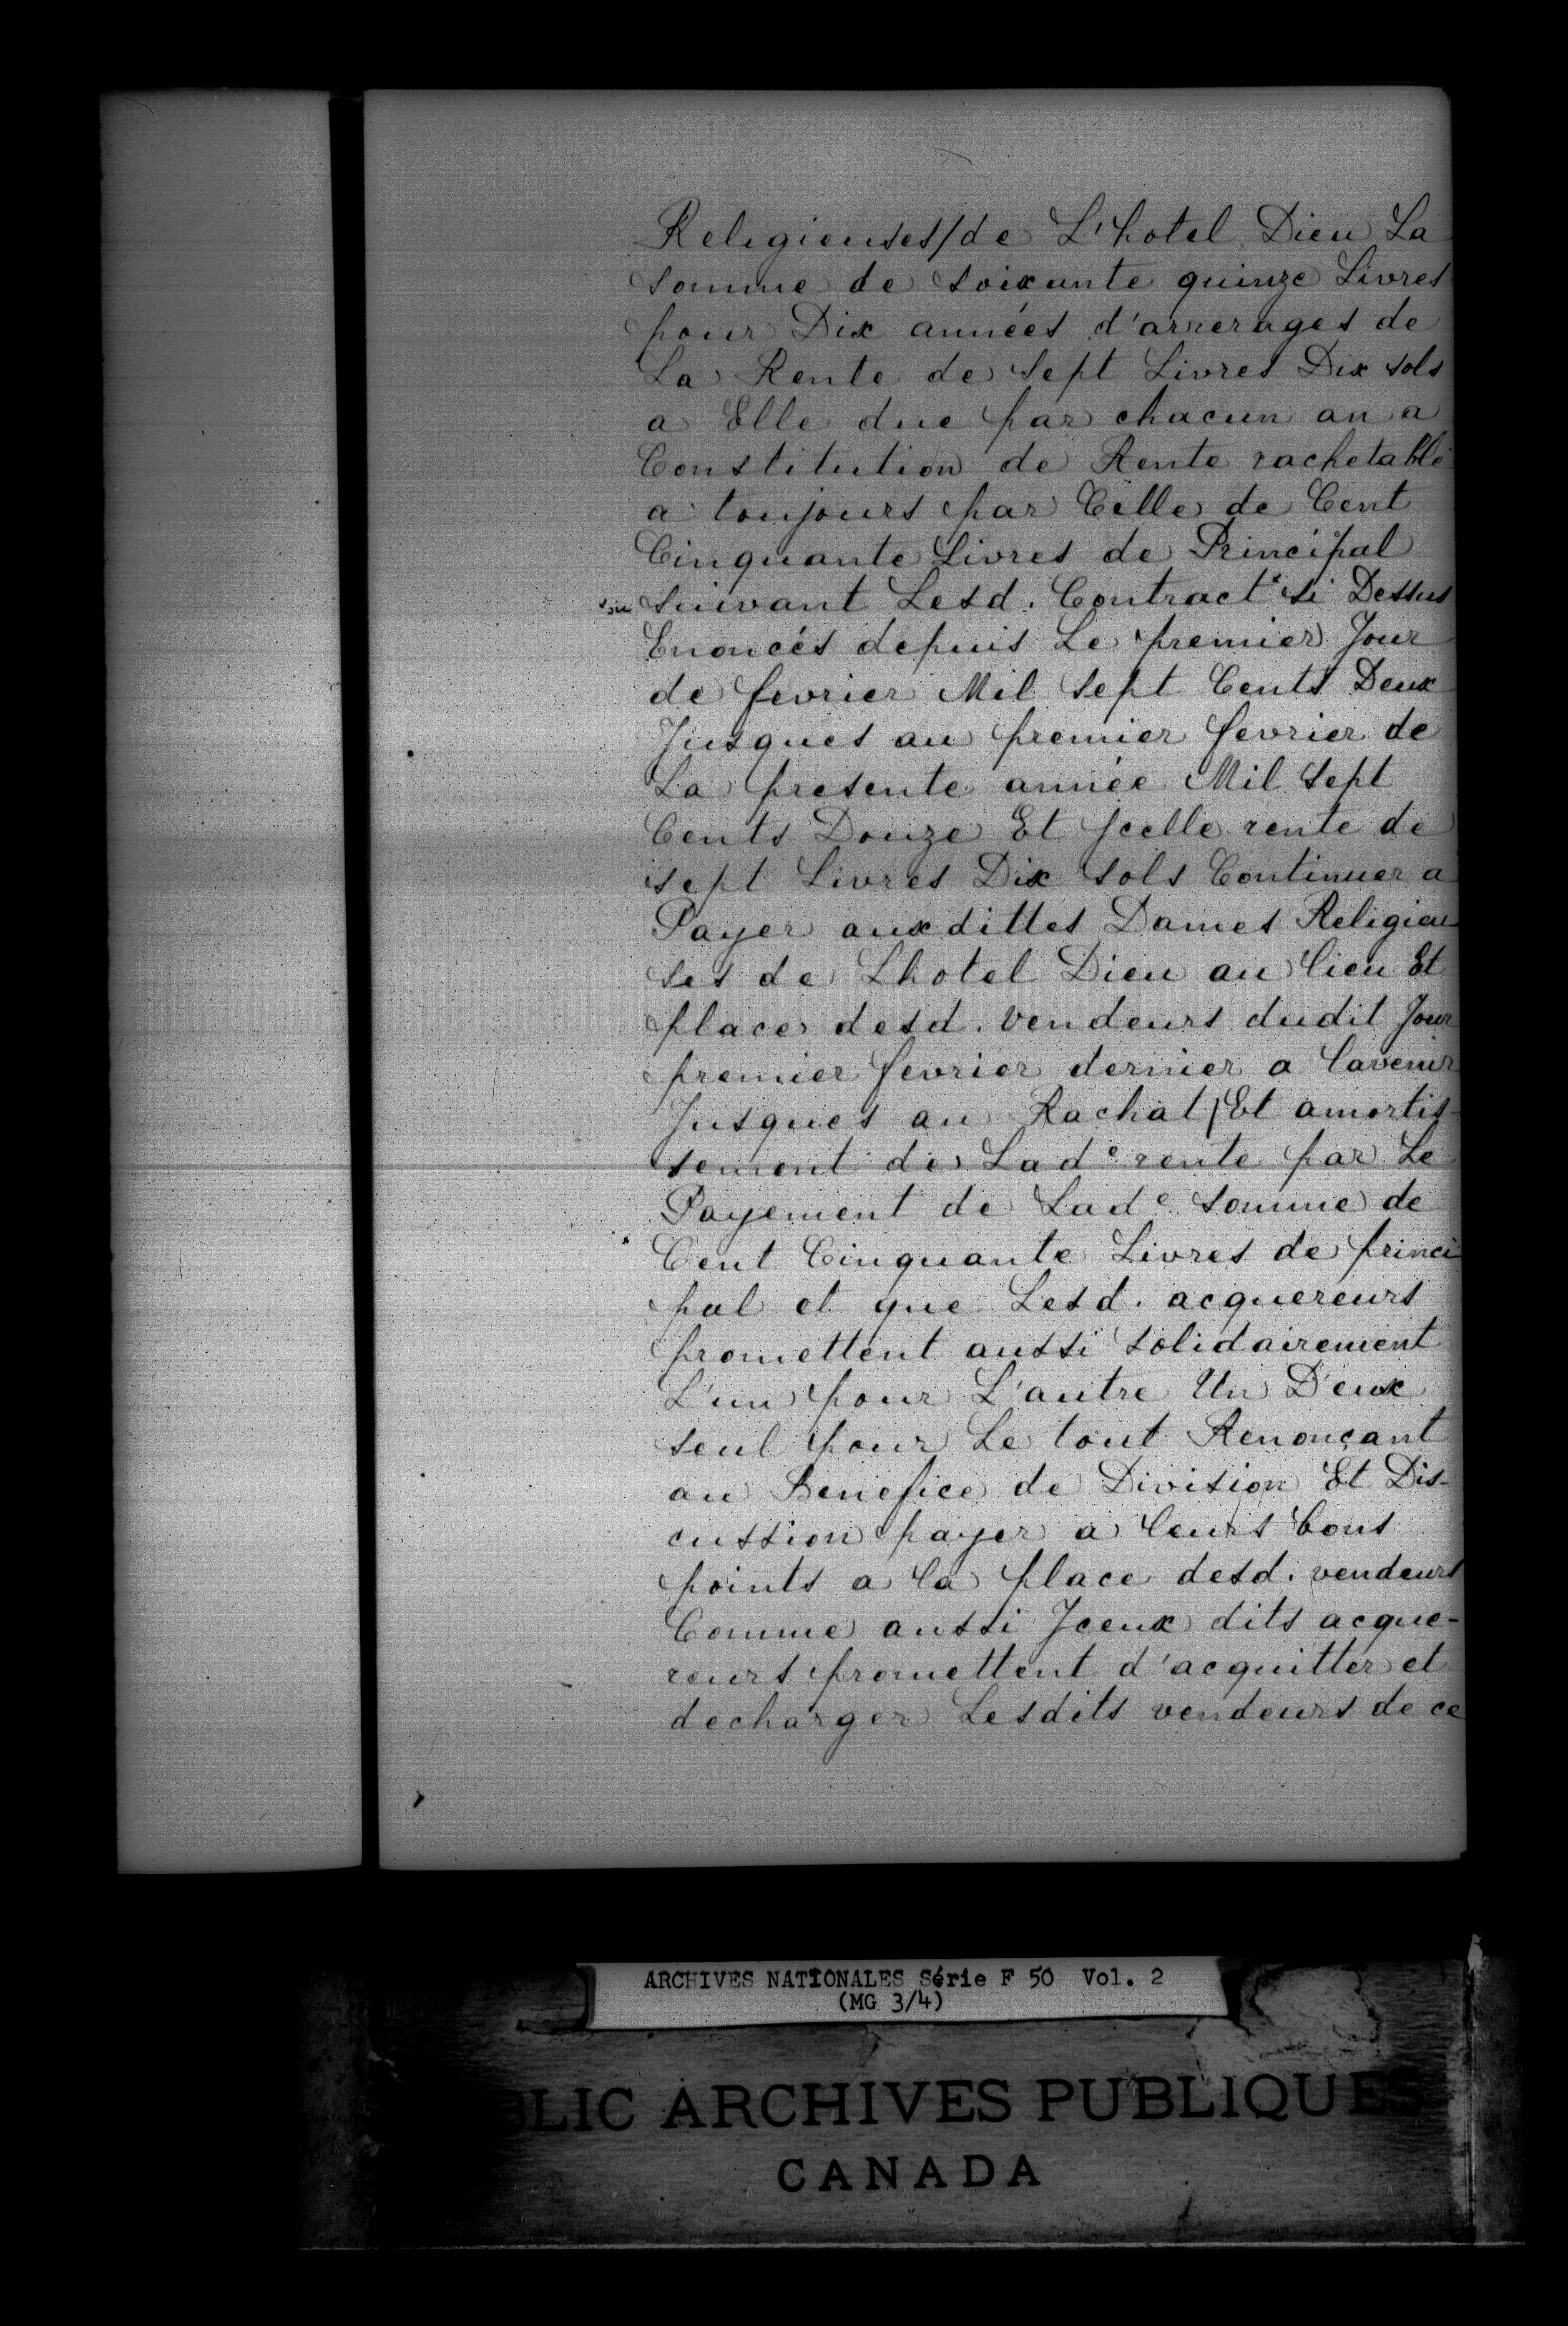 Religieuses/de L'hotel Dieu La
somme de soixante quinze Livres
pour Dix années d'arrerages de
La Rente de sept Livres Dix sols
a Elle due par chacun an a
Constitution de Rente rachetable
a toujours par Celle de Cent
Cinquante Livres de Principal
suivant Lesd. Contract* si Dessus
Enoncés depuis Le premier Jour
de fevrier Mil sept Cents Deux
Jusques au premier fevrier de
La presente année Mil sept
Cents Douze Et Jcelle rente de
sept Livres Dix sols Continuer a
Payer auxdittes Dames Religieu
ses de Lhotel Dieu au lieu Et
place desd. vendeurs dudit Jour
premier fevrier dernier a lavenir
Jusques au Rachat/Et amortis-
sement de Lade rente par Le
Payement de Lade somme de
Cent Cinquante Livres de princi
pal et que Lesd. acquereurs
promettent aussi solidairement
L'un pour L'autre Un D'eux
seul pour Le tout Renonçant
au Benefice de Division Et Dis-
cussion payer a leurs bons
points a la place desd. vendeurs
Comme aussi Jceux dits acque-
reurs promettent d'acquitter et
decharger Lesdits vendeurs de ce
ARCHIVES NATIONALES Série F 50 Vol. 2
(MG 3/4)
BLIC ARCHIVES PUBLIQUES
CANADA